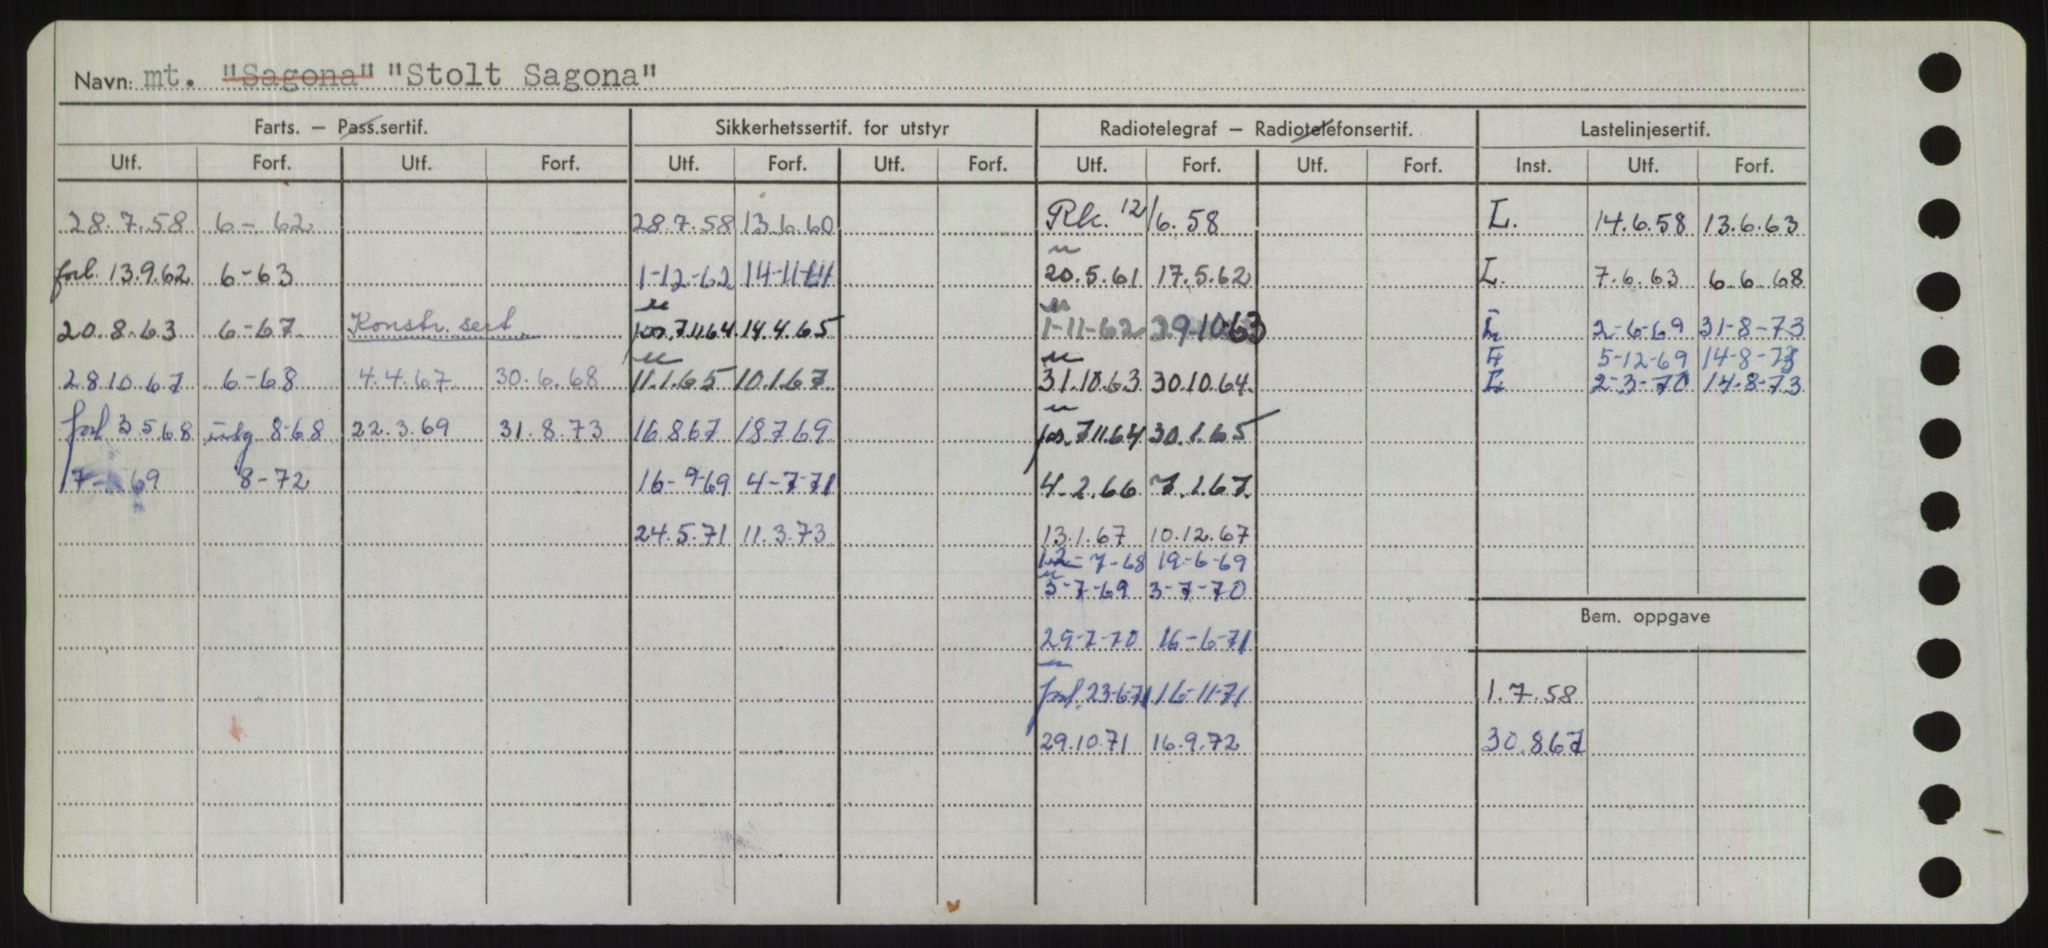 Navn: mt. "Sagona" "Stolt Sagona"
Farts. – Pass.sertif. Sikkerhetssertif. for utstyr Radiotelegraf – Radiotelefonsertif. Lastelinjesertif.
Utf. Forf. Utf. Forf. Utf. Forf. Utf. Forf. Utf. Forf. Utf. Forf. Inst. Utf. Forf.
28.7.58 6-62 28.7.58 13.6.60 Rk. 12/6.58 L. 14.6.58 13.6.63
forl. 13.9.62 6-63 1-12-62 14-11-64 20.5.61 17.5.62 L. 7.6.63 6.6.68
20.8.63 6-67 Konstr. sert. 7.11.64 14.4.65 1-11-62 29-10-63 L 2-6-69 31-8-73
5-12-69 14-8-73
28.10.67 6-68 4.4.67 30.6.68 11.1.65 10.1.67 31.10.63 30.10.64 L 2-3-70 14-8-73
forl 3.5.68 8-68 22.3.69 31.8.73 16.8.67 18.7.69 7.11.64 30.1.65
69 8-72 16-9-69 4-7-71 4.2.66 7.1.67
24.5.71 11.3.73 13.1.67 10.12.67
12-7-68 19-6-69
3-7-69 3-7-70
Bem. oppgave
29-7-70 16-6-71
forl. 23-6-71 16-11-71 1.7.58
29.10.71 16.9.72 30.8.67